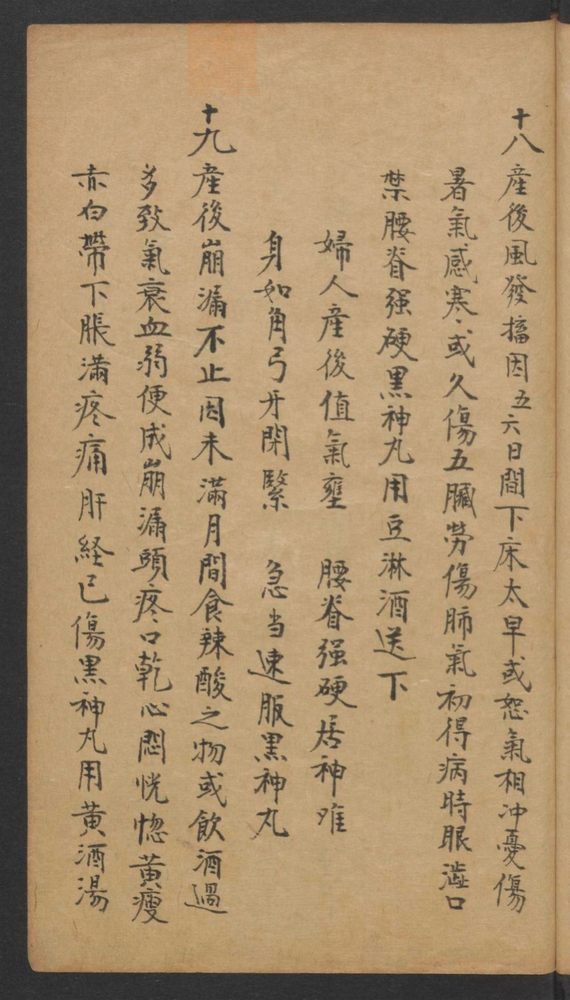 十八産後風發搐因五六日間下床太早或怒氣相沖憂傷
暑氣感寒或久傷五臟勞傷肺氣初得病時眼澁口
禁腰脊强硬黒神丸用豆淋酒送下
婦人産後值氣壅 腰脊强硬居神难
身如角弓牙閉緊 急当速服黒神丸
十九産後崩漏不止因未滿月間食辣酸之物或飲酒過
多致氣衰血弱便成崩漏頭疼口乾心悶恍惚黄瘦
赤白帶下脹滿疼痛肝経已傷黒神丸用黄酒湯